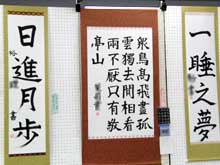 一睡之夢
衆鳥高飛盡孤
雲獨去閒相看
兩不厭只有敬
亭山
日進月歩